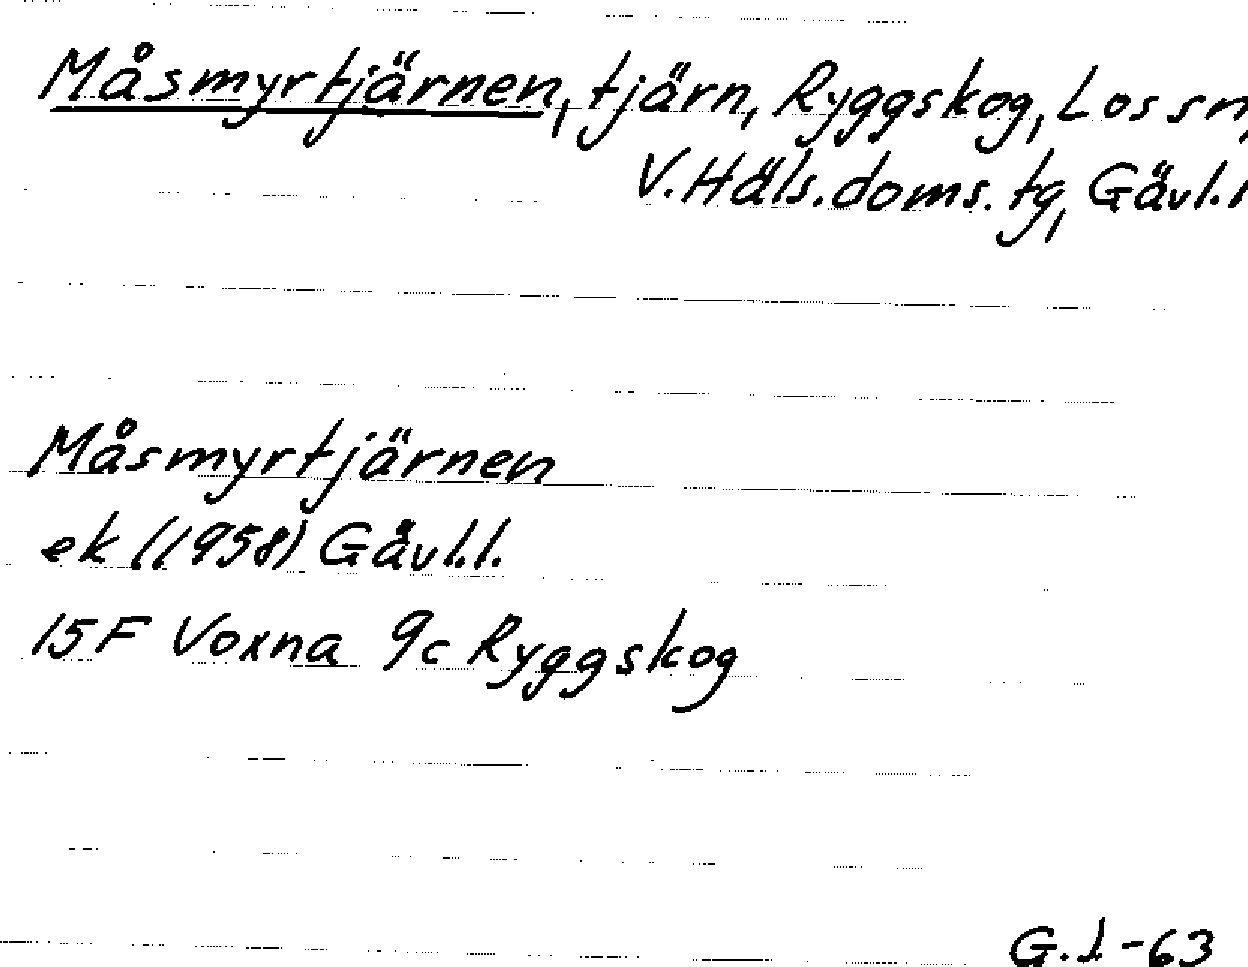 Måsmyrtjärnen, tjärn, Ryggskog, Los sn,
V. Häls. doms. tg, Gävl. l
Måsmyrtjärnen
ek (1958) Gävl. l.
15F Voxna 9c Ryggskog
G. I. -63